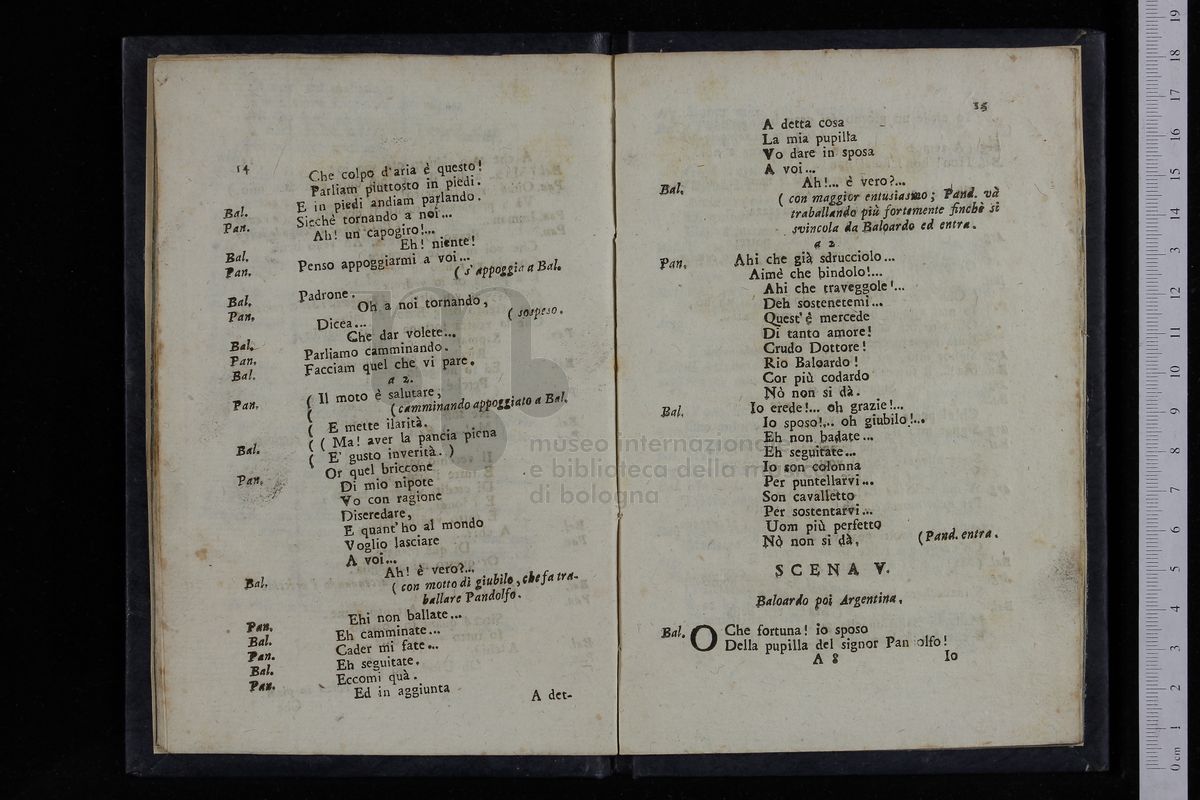 14
Che colpo d'aria è questo!
Parliam piuttosto in piedi.
Bal. E in piedi andiam parlando.
Pan. Sicchè tornando a noi...
Ah! un capogiro!...
Bal. Eh! niente!
Pan. Penso appoggiarmi a voi...
( s'appoggia a Bal.
Bal. Padrone.
Pan. Oh a noi tornando,
Dicea... ( sospeso.
Bal. Che dar volete...
Pan. Parliamo camminando.
Bal. Facciam quel che vi pare.
a 2.
Pan. ( Il moto è salutare,
( (camminando appoggiato a Bal.
( E mette ilarità.
Bal. ( ( Ma! aver la pancia piena
( E' gusto inverità. )
Pan. Or quel briccone
Di mio nipote
Vo con ragione
Diseredare,
E quant'ho al mondo
Voglio lasciare
A voi...
Bal. Ah! è vero?...
( con motto di giubilo, che fa tra-
ballare Pandolfo.
Pan. Ehi non ballate...
Bal. Eh camminate...
Pan. Cader mi fate...
Bal. Eh seguitate.
Pan. Eccomi quà.
Ed in aggiunta
A det-
15
A detta cosa
La mia pupilla
Vo dare in sposa
A voi...
Bal. Ah!... è vero?...
( con maggior entusiasmo; Pand. và
traballando più fortemente finchè si
svincola da Baloardo ed entra.
a 2
Pan. Ahi che già sdrucciolo...
Aimè che bindolo!...
Ahi che traveggole!...
Deh sostenetemi...
Quest'è mercede
Di tanto amore!
Crudo Dottore!
Rio Baloardo!
Cor più codardo
Nò non si dà.
Bal. Io erede!... oh grazie!...
Io sposo!... oh giubilo!...
Eh non badate...
Eh seguitate...
Io son colonna
Per puntellarvi...
Son cavalletto
Per sostentarvi...
Uom più perfetto
Nò non si dà, (Pand. entra.
SCENA V.
Baloardo poi Argentina.
Bal. O Che fortuna! io sposo
Della pupilla del signor Pan olfo!
A 8 Io
museo internazionale
e biblioteca della musica
di bologna
0 cm 1 2 3 4 5 6 7 8 9 10 11 12 13 14 15 16 17 18 19